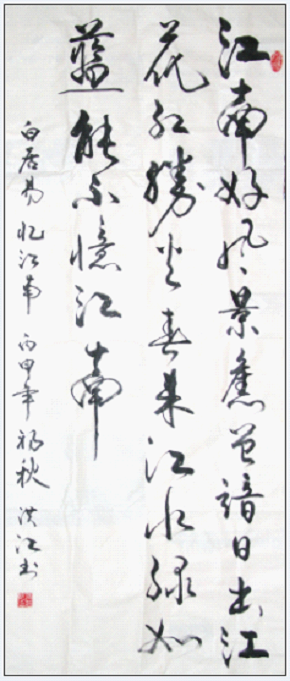 江南好风景舊曾諳日出江
花红勝火春来江水绿如
藍能不憶江南
白居易 忆江南 丙申年初秋 洪江书